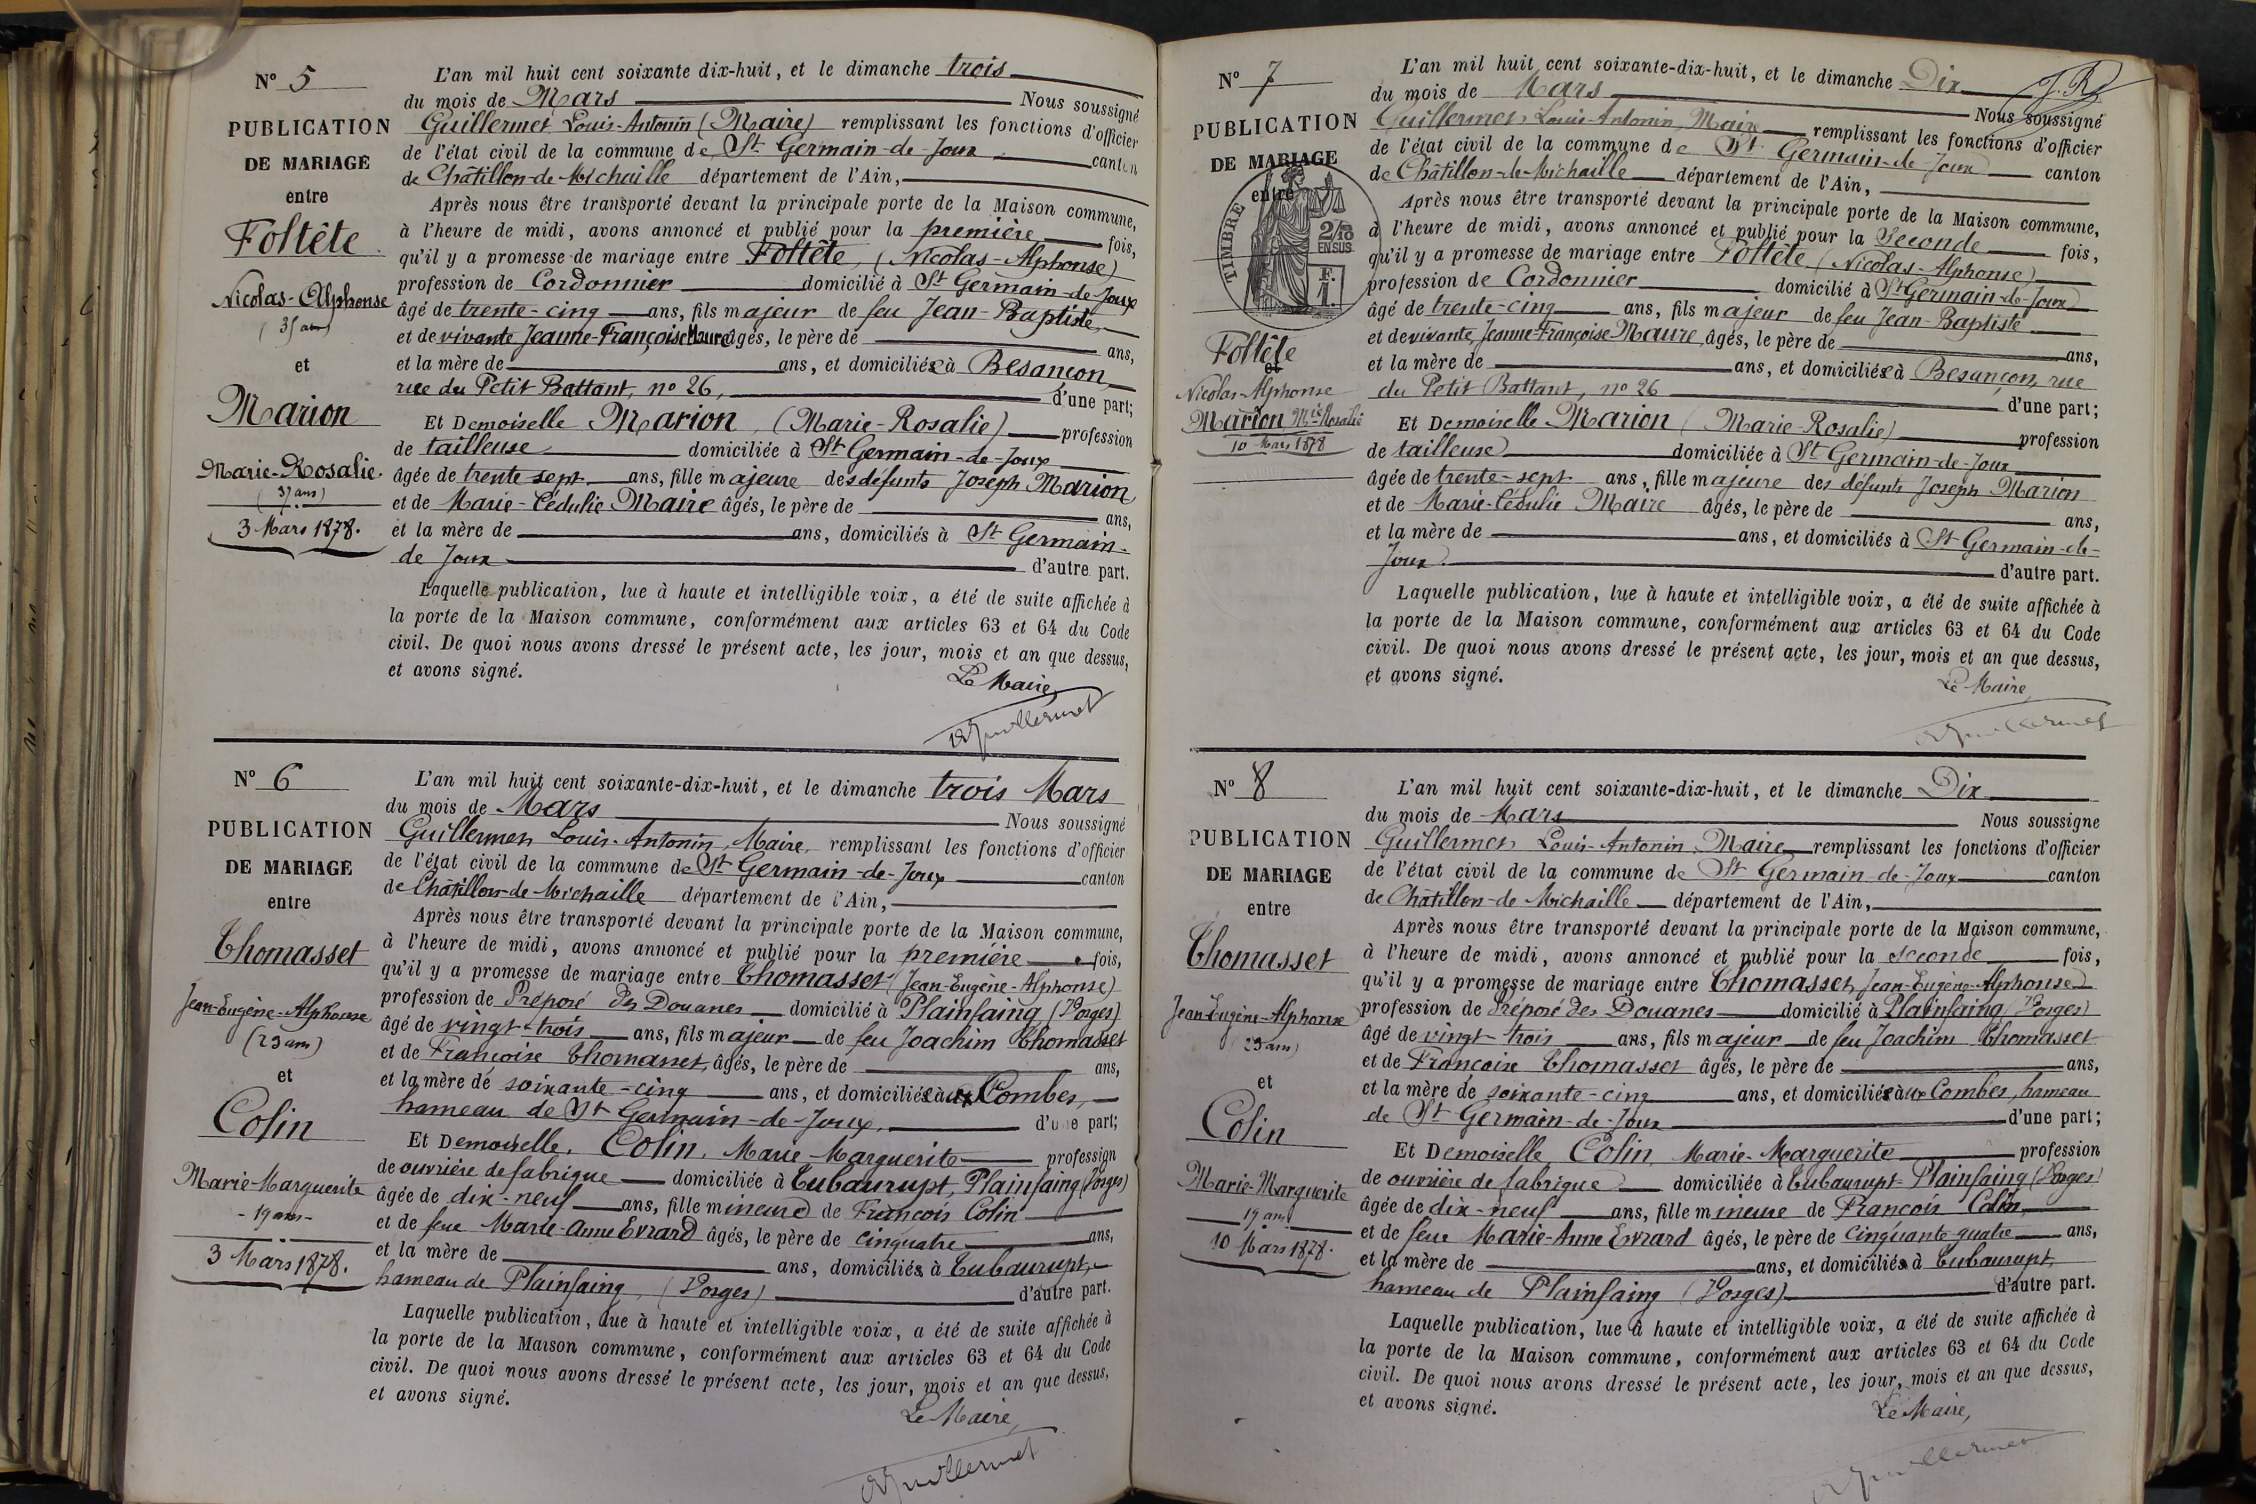 N° 5
PUBLICATION
DE MARIAGE
entre
Foltête
Nicolas-Alphonse
(35 ans)
et
Marion
Marie-Rosalie
(37 ans)
3 Mars 1878.
L'an mil huit cent soixante dix-huit, et le dimanche trois
du mois de Mars Nous soussigné
Guillermet Louis-Antonin (Maire) remplissant les fonctions d'officier
de l'état civil de la commune de St Germain-de-Joux canton
de Châtillon-de-Michaille département de l'Ain,
Après nous être transporté devant la principale porte de la Maison commune,
à l'heure de midi, avons annoncé et publié pour la première fois,
qu'il y a promesse de mariage entre Foltête, (Nicolas-Alphonse)
profession de Cordonnier domicilié à St Germain-de-Joux
âgé de trente-cinq ans, fils majeur de feu Jean-Baptiste,
et de vivante Jeanne-Françoise Maure âgés, le père de ans,
et la mère de ans, et domiciliée à Besançon,
rue du Petit Battant, n° 26, d'une part;
Et Demoiselle Marion, (Marie-Rosalie) profession
de tailleuse domiciliée à St Germain-de-Joux
âgée de trente sept ans, fille majeure des défunts Joseph Marion
et de Marie-Cédulie Maire âgés, le père de ans,
et la mère de ans, domiciliés à St Germain-
de Joux d'autre part.
Laquelle publication, lue à haute et intelligible voix, a été de suite affichée à
la porte de la Maison commune, conformément aux articles 63 et 64 du Code
civil. De quoi nous avons dressé le présent acte, les jour, mois et an que dessus,
et avons signé.
Le Maire,
Guillermet
N° 6
PUBLICATION
DE MARIAGE
entre
Thomasset
Jean-Eugène-Alphonse
(23 ans)
et
Colin
Marie-Marguerite
-19 ans-
3 Mars 1878.
L'an mil huit cent soixante-dix-huit, et le dimanche trois Mars
du mois de Mars Nous soussigné
Guillermet Louis-Antonin, Maire, remplissant les fonctions d'officier
de l'état civil de la commune de St Germain-de-Joux canton
de Châtillon-de-Michaille département de l'Ain,
Après nous être transporté devant la principale porte de la Maison commune,
à l'heure de midi, avons annoncé et publié pour la première fois,
qu'il y a promesse de mariage entre Thomasset (Jean-Eugène-Alphonse)
profession de Préposé des Douanes domicilié à Plainfaing (Vosges)
âgé de vingt-trois ans, fils majeur de feu Joachim Thomasset
et de Françoise Thomasset, âgés, le père de ans,
et la mère de soixante-cinq ans, et domiciliée aux Combes,
hameau de St Germain-de-Joux, d'une part;
Et Demoiselle, Colin, Marie-Marguerite profession
de ouvrière de fabrique domiciliée à Tubaurupt, Plainfaing (Vosges)
âgée de dix-neuf ans, fille mineure de François Colin
et de feue Marie-Anne Evrard âgés, le père de cinquatre ans,
et la mère de ans, domiciliés à Tubaurupt,
hameau de Plainfaing, (Vosges) d'autre part.
Laquelle publication, lue à haute et intelligible voix, a été de suite affichée à
la porte de la Maison commune, conformément aux articles 63 et 64 du Code
civil. De quoi nous avons dressé le présent acte, les jour, mois et an que dessus,
et avons signé.
Le Maire,
Guillermet
N° 7
PUBLICATION
DE MARIAGE
entre
TIMBRE
2/10
EN SUS
F.
1.
Foltête
et
Nicolas-Alphonse
Marion Mie Rosalie
10 Mars 1878
L'an mil huit cent soixante-dix-huit, et le dimanche Dix
du mois de Mars Nous soussigné
Guillermet Louis-Antonin, Maire remplissant les fonctions d'officier
de l'état civil de la commune de St Germain-de-Joux canton
de Châtillon-de-Michaille département de l'Ain,
Après nous être transporté devant la principale porte de la Maison commune,
à l'heure de midi, avons annoncé et publié pour la Seconde fois,
qu'il y a promesse de mariage entre Foltête (Nicolas-Alphonse)
profession de Cordonnier domicilié à St Germain-de-Joux
âgé de trente-cinq ans, fils majeur de feu Jean-Baptiste
et de vivante Jeanne-Françoise Maure âgés, le père de ans,
et la mère de ans, et domiciliée à Besançon, rue
du Petit Battant, n° 26 d'une part;
Et Demoiselle Marion (Marie-Rosalie) profession
de tailleuse domiciliée à St Germain-de-Joux
âgée de trente-sept ans, fille majeure des défunts Joseph Marion
et de Marie-Cédulie Maire âgés, le père de ans,
et la mère de ans, et domiciliés à St Germain-de-
Joux. d'autre part.
Laquelle publication, lue à haute et intelligible voix, a été de suite affichée à
la porte de la Maison commune, conformément aux articles 63 et 64 du Code
civil. De quoi nous avons dressé le présent acte, les jour, mois et an que dessus,
et avons signé.
Le Maire,
Guillermet
N° 8
PUBLICATION
DE MARIAGE
entre
Thomasset
Jean-Eugène-Alphonse
(23 ans)
et
Colin
Marie-Marguerite
19 ans
10 Mars 1878.
L'an mil huit cent soixante-dix-huit, et le dimanche Dix
du mois de Mars Nous soussigné
Guillermet Louis-Antonin, Maire remplissant les fonctions d'officier
de l'état civil de la commune de St Germain-de-Joux canton
de Châtillon-de-Michaille département de l'Ain,
Après nous être transporté devant la principale porte de la Maison commune,
à l'heure de midi, avons annoncé et publié pour la seconde fois,
qu'il y a promesse de mariage entre Thomasset, Jean-Eugène-Alphonse
profession de Préposé des Douanes domicilié à Plainfaing (Vosges)
âgé de vingt-trois ans, fils majeur de feu Joachim Thomasset
et de Françoise Thomasset âgés, le père de ans,
et la mère de soixante-cinq ans, et domiciliée aux Combes, hameau
de St Germain-de-Joux d'une part;
Et Demoiselle Colin, Marie-Marguerite profession
de ouvrière de fabrique domiciliée à Tubaurupt-Plainfaing (Vosges)
âgée de dix-neuf ans, fille mineure de François Colin,
et de feue Marie-Anne Evrard âgés, le père de Cinquante quatre ans,
et la mère de ans, et domiciliés à Tubaurupt,
hameau de Plainfaing (Vosges) d'autre part.
Laquelle publication, lue à haute et intelligible voix, a été de suite affichée à
la porte de la Maison commune, conformément aux articles 63 et 64 du Code
civil. De quoi nous avons dressé le présent acte, les jour, mois et an que dessus,
et avons signé.
Le Maire,
Guillermet